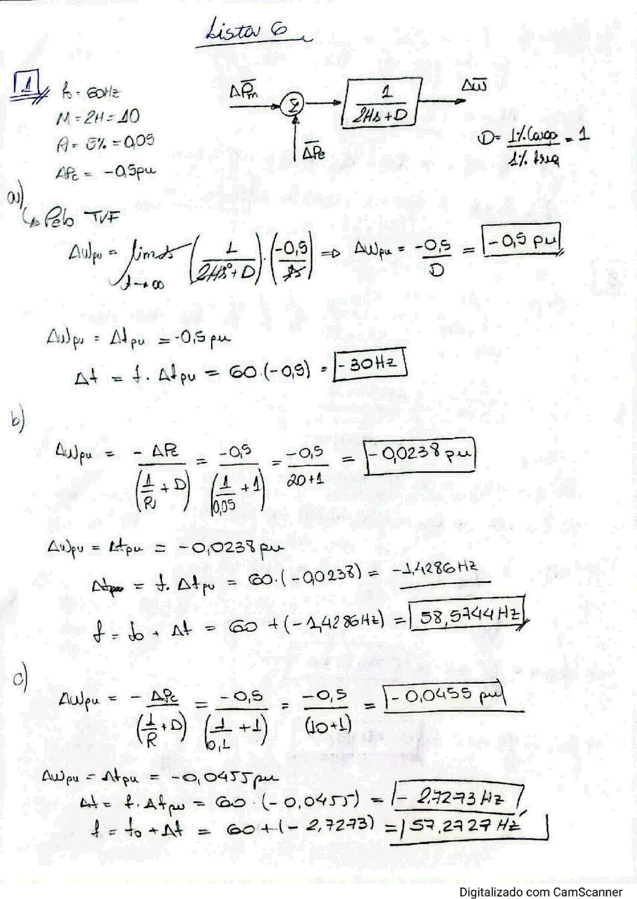 Lista 6
1
f₀ = 60Hz
M = 2H = 10
R = 5% = 0,05
ΔPc = -0,5pu
ΔP̅m Σ 1/(2Hs+D) Δω̅
ΔP̅e
D = 1% Carga / 1% freq = 1
a)
↳ Pelo TVF
Δωpu = lim s (1/(2Hs+D)) · (-0,5/s) ⇒ Δωpu = -0,5/D = -0,5 pu
t→∞
Δωpu = Δfpu = -0,5pu
Δf = f · Δfpu = 60 · (-0,5) = -30Hz
b)
Δωpu = -ΔPc/(1/R + D) = -0,5/(1/0,05 + 1) = -0,5/20+1 = -0,0238 pu
Δωpu = Δfpu = -0,0238pu
= f · Δfpu = 60 · (-0,0238) = -1,4286Hz
f = f₀ + Δf = 60 + (-1,4286Hz) = 58,5744 Hz
c)
Δωpu = -ΔPc/(1/R + D) = -0,5/(1/0,1 + 1) = -0,5/(10+1) = -0,0455 pu
Δωpu = Δfpu = -0,0455pu
Δf = f · Δfpu = 60 · (-0,0455) = -2,7273 Hz
f = f₀ + Δf = 60 + (-2,7273) = 57,2727 Hz
Digitalizado com CamScanner